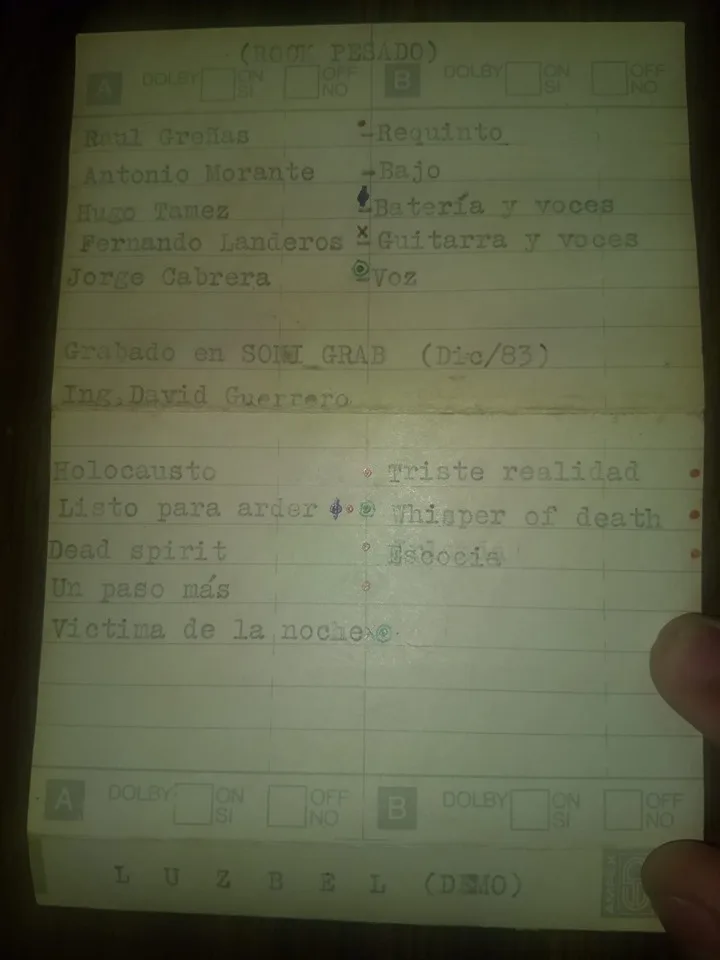 (ROCK PESADO)
A DOLBY ON SI OFF NO B DOLBY ON SI OFF NO
Raul Greñas -Requinto
Antonio Morante -Bajo
Hugo Tamez -Batería y voces
Fernando Landeros - Guitarra y voces
Jorge Cabrera -Voz
Grabado en SONI_GRAB (Dic/83)
Ing.David Guerrero
Holocausto Triste realidad
Listo para arder Whisper of death
Dead spirit Escocia
Un paso más
Victima de la noche
A DOLBY ON SI OFF NO B DOLBY ON SI OFF NO
L U Z B E L (DEMO)